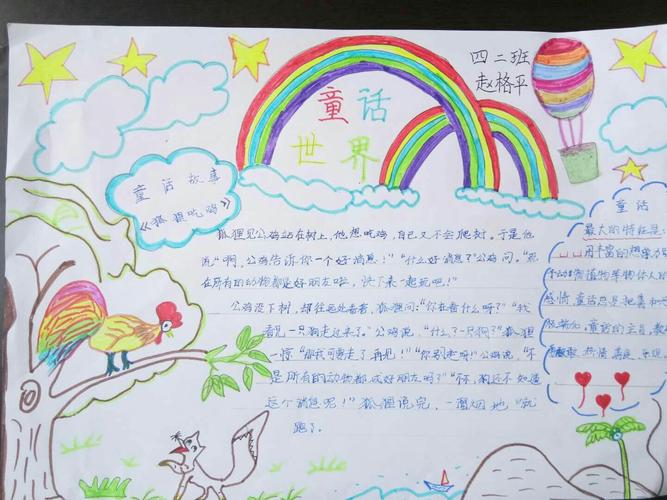 四二班
赵格平
童话
世界
童话故事
《狐狸吃鸡》
狐狸见公鸡站在树上，他想吃鸡，自己又不会爬树。于是他
说“啊，公鸡告诉你一个好消息！”“什么好消息？”公鸡问。“现
在所有的动物都是好朋友啦，快下来一起玩吧！”
公鸡没下树，却往远处看看，狐狸问：“你在看什么呀？”“我
看见一只狗走过来了。”公鸡说，“什么？一只狗？”狐狸
一惊“那我可要走了再见！”“你别走呀！”公鸡说，“不
是所有的动物都成好朋友吗？”“不，狗还不知道
这个消息呢！”狐狸说完，一溜烟地“就
跑了。
童话
最大的特征是：
用丰富的想象力
动植物
感情，童话总是把真和
童话的主旨，教
热情